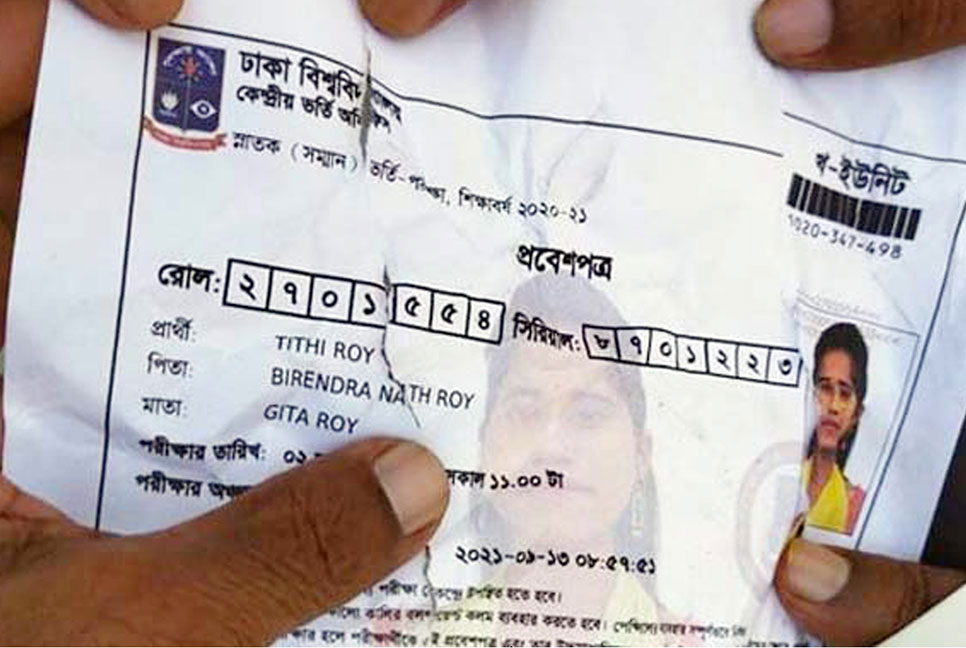 ঢাকা বিশ্ববিদ্যালয়
কেন্দ্রীয় ভর্তি অফিস
স্নাতক (সম্মান) ভর্তি-পরীক্ষা, শিক্ষাবর্ষ ২০২০-২১
খ-ইউনিট
1020-347-498
প্রবেশপত্র
রোল: ২৭০১৫৫৪ সিরিয়াল: ৮৭০১২২৩
প্রার্থী: TITHI ROY
পিতা: BIRENDRA NATH ROY
মাতা: GITA ROY
পরীক্ষার তারিখ: ০২ সকাল ১১.০০ টা
পরীক্ষার
২০২১-০৯-১৩ ০৮:৫৭:৫১
পরীক্ষা কেন্দ্রে উপস্থিত হতে হবে।
কালির বলপয়েন্ট কলম ব্যবহার করতে হবে। পেন্সিলের ব্যবহার সম্পূর্ণভাবে
হলে পরীক্ষার্থীকে এই প্রবেশপত্র এবং তার